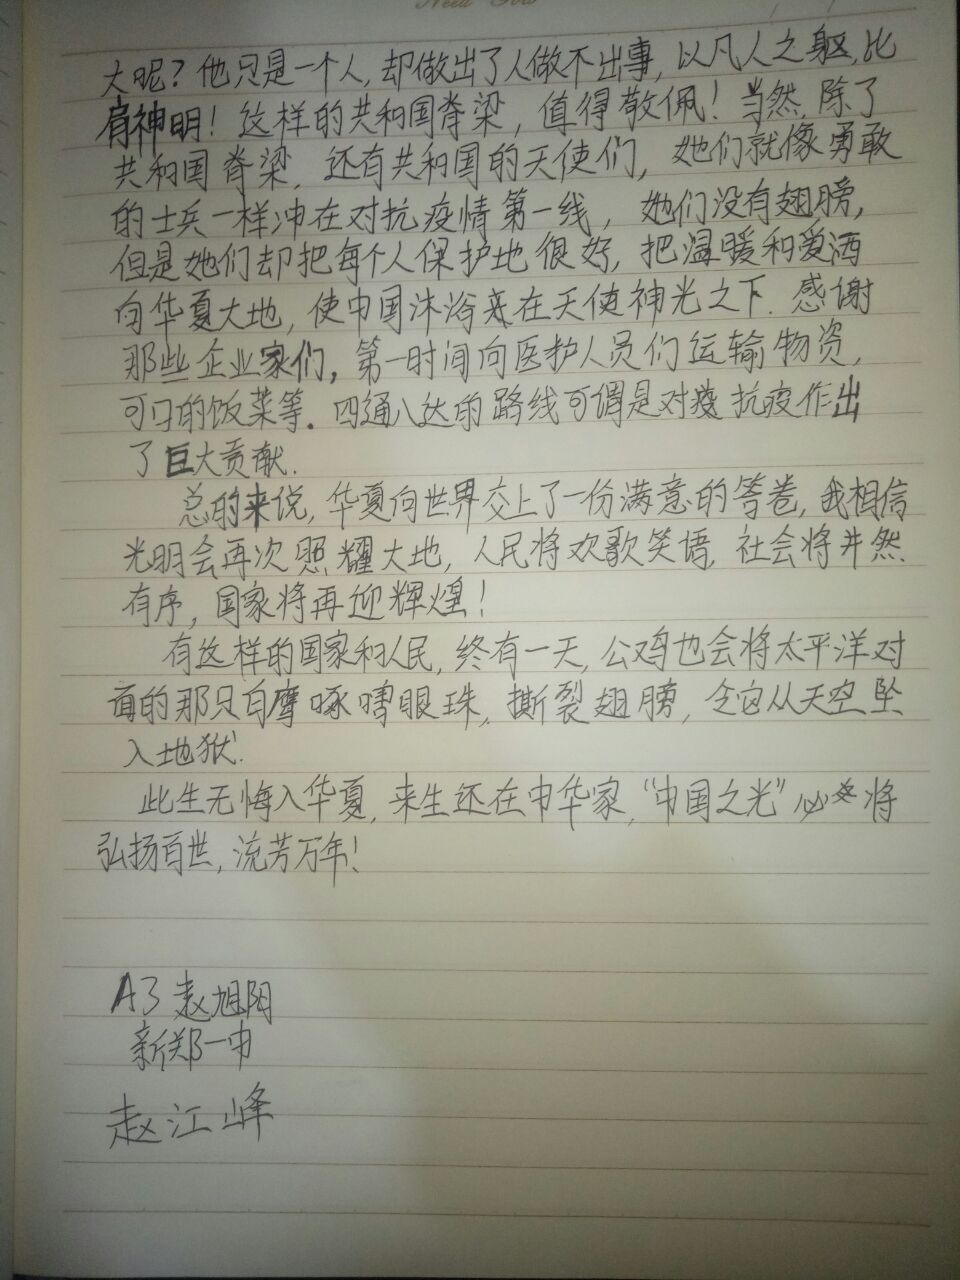 大呢？他只是一个人，却做出了人做不出事，以凡人之躯，比
肩神明！这样的共和国脊梁，值得敬佩！当然，除了
共和国脊梁，还有共和国的天使们，她们就像勇敢
的士兵一样冲在对抗疫情第一线，她们没有翅膀，
但是她们却把每个人保护地很好，把温暖和爱洒
向华夏大地，使中国沐浴在天使神光之下．感谢
那些企业家们，第一时间向医护人员们运输物资，
可口的饭菜等．四通八达的路线可谓是对疫抗疫作出
了巨大贡献．
总的来说，华夏向世界交上了一份满意的答卷，我相信
光明会再次照耀大地，人民将欢歌笑语，社会将井然
有序，国家将再迎辉煌！
有这样的国家和人民，终有一天，公鸡也会将太平洋对
面的那只白鹰啄瞎眼珠，撕裂翅膀，令它从天空坠
入地狱．
此生无悔入华夏，来生还在中华家，“中国之光”必将
弘扬百世，流芳万年！
A3 赵旭阳
新郑一中
赵江峰